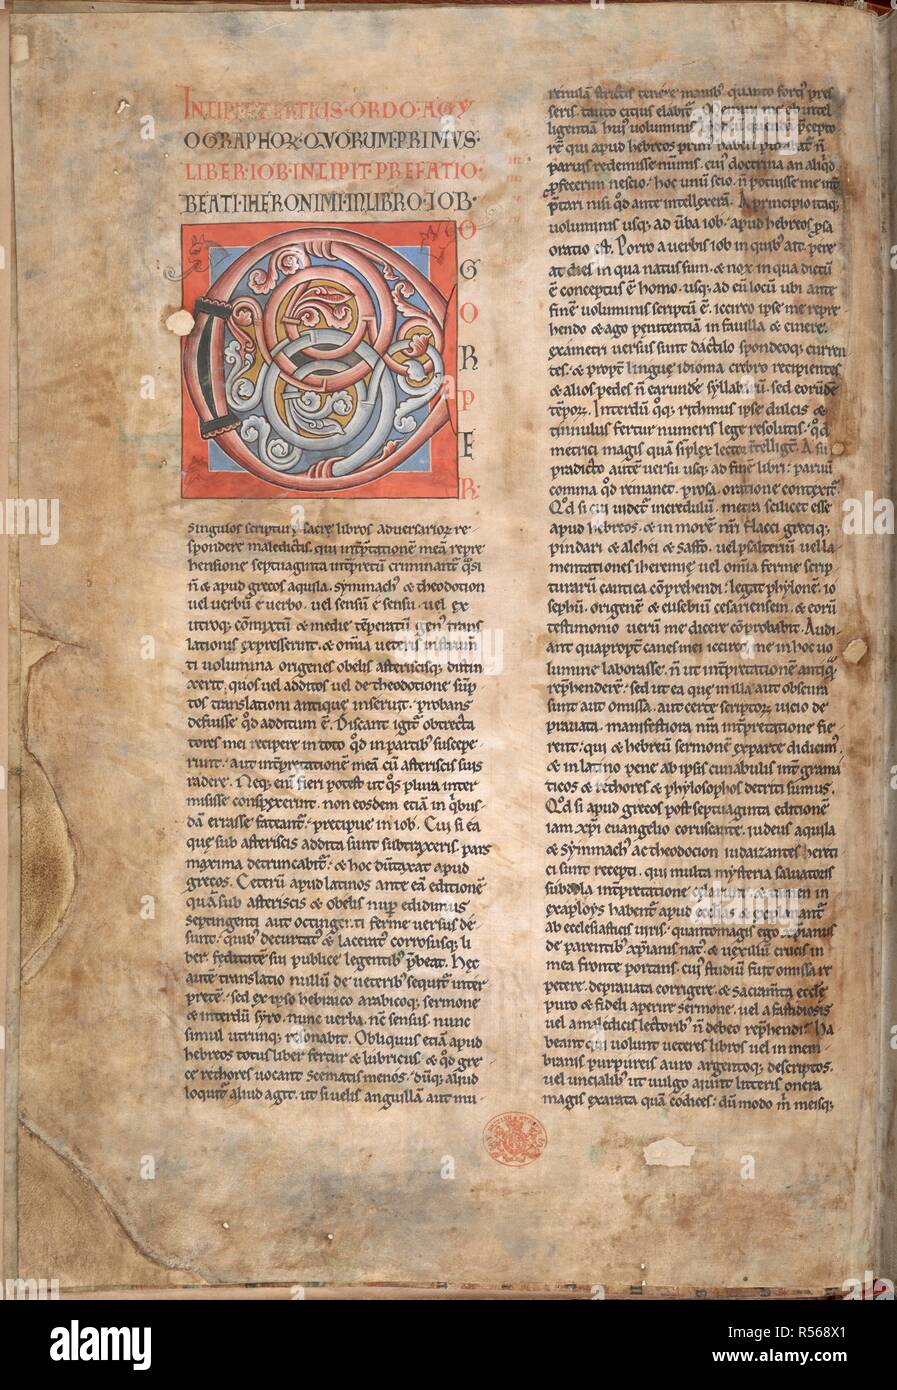 INCIPIT TERTIUS·ORDO·AGY
OGRAPHOR·QVORUM·PRIMVS·
LIBER·IOB·INCIPIT·PREFATIO·
BEATI·IHERONIMI·IN LIBRO·IOB·
C
O
G
O
R
P
E
R·
singulos scripturę sacre libros aduersarior re-
spondere maledictis. qui int̄ptationē meā repre
hensione septuaginta int̄pretū criminant̉. q̄si
n̄ & apud grecos aquila. symmach᾽ & theodotion
uel uerbū e uerbo. uel sensū e sensu. uel ex
utroq; cōmixtū & medie tēperatū gen᾽ trans
lationis expresserint. & om̄ia ueteris instrum̄
ti uolumina origenes obelis asteriscisq; distin
xerit. quos uel additos uel de theodotione sūp
tos translationi antique inseruit. probans
defuisse qd̄ additum ē. Discant igit̉ obtrecta
tores mei recipere in toto qd̄ in partib᾽ suscepe-
runt. aut int̄pretationē meā cū asteriscis suis
radere. Neq; enī fieri potest ut q̄s plura inter
misisse conspexerint. non eosdem etiā in q̄bus-
dā errasse fateant̉. precipue in iob. Cui si ea
que sub asteriscis addita sunt subtraxeris. pars
maxima detruncabit̉. & hoc dūtaxat apud
grecos. Ceterū apud latinos ante eā editionē
quā sub asteriscis & obelis nup̄ edidimus
septingenti aut octingenti ferme uersus de
sunt. quib᾽ decurtat᾽ & lacerat᾽ corrosusq; li
ber. feditatē sui publice legentib᾽ p̄beat. Hęc
autē translatio nullū de ueterib᾽ sequit̉ inter
pretē. sed ex ipso hebraico arabicoq; sermone
& interdū syro. nunc uerba. nc̄ sensus. nunc
simul utrunq; resonabit. Obliquus etiā apud
hebreos totus liber fertur & lubricus. & qd̄ gre
ce rethores uocant scematismenos. dūq; aliud
loquit̉ aliud agit. ut si uelis anguillā aut mu-
renulā strictis tenere manib᾽. quanto forti᾽ pres
seris. tanto citius elabit̉. Memini me ob intel
ligentiā hui᾽ uoluminis
rē qui apud hebreos prim᾽ haberi putabat̉ n̄
paruis redemisse nūmis. cui᾽ doctrina an aliqd̄
p̄fecerim nescio. hoc unū scio. n̄ potuisse me int̄
p̄tari nisi qd̄ ante intellexerā. A principio itaq;
uoluminis usq; ad ūba iob. apud hebreos p̄sa
oratio est. Porro a uerbis iob in quib᾽ ait. pere
at dies in qua natus sum. & nox in qua dictū
ē conceptus ē homo. usq; ad eū locū ubi ante
finē uoluminis scriptū ē. iccirco ipse me repre
hendo & ago penitentiā in fauilla & cinere.
exametri uersus sunt dactilo spondeoq; curren
tes. & propt̄ linguę idioma crebro recipientes
& alios pedes n̄ earunde syllabarū. sed eorūde
tēporꝝ. Interdū qq; rithmus ipse dulcis &
tinnulus fertur numeris lege resolutis. qd̄
metrici magis quā simplex lector intelligit. A sup̄
p̄radicto autē uersu usq; ad finē libri. paruū
comma qd̄ remanet. prosa oratione contexit̉
Qd̄ si cui uidet̉ incredulū. metra scilicet esse
apud hebreos. & in morē nr̄i flacci greciq;
pindari & alchei & saffo. uel psalteriū uel la
mentationes iheremię uel om̄ia ferme scrip
turarū cantica cōprehendi. legat phylonē. io
sephū. origenē & eusebiū cesariensem. & eorū
testimonio uerū me dicere cōprobabit. Audi-
ant quapropt̄ canes mei iccirco me in hoc uo
lumine laborasse. n̄ ut int̄pretationē antiquā
rep̄henderē. sed ut ea que in illa aut obscura
sunt aut omissa. aut certe scriptorꝝ uicio de
prauata. manifestiora nr̄a int̄pretatione fie
rent. qui & hebreū sermonē ex parte didicim᾽.
& in latino pene ab ipsis cunabulis int̄ grama
ticos & rethores & phylosophos detriti sumus.
Qd̄ si apud grecos post septuaginta editionē
iam xp̄i euangelio coruscante. iudeus aquila
& symmach᾽ ac theodotion iudaizantes hereti
ci sunt recepti. qui multa mysteria saluatoris
subdola int̄pretatione celarunt & tamen in
exaploys habent̉ apud ecclesias & explanant̉
ab ecclesiasticis uiris. quantomagis ego xp̄ianus
de parentib᾽ xp̄ianis nat᾽. & uexillū crucis in
mea fronte portans. cui᾽ studiū fuit omissa re
petere. deprauata corrigere. & sacram̄ta ecclę
puro & fideli aperire sermone. uel a fastidiosis
uel a maledicis lectorib᾽ n̄ debeo rep̄hendi. Ha
beant qui uolunt ueteres libros uel in mem
branis purpureis auro argentoq; descriptos.
uel uncialib᾽ ut uulgo aiunt litteris onera
magis exarata quā codices. dū modo m̄ meisq;
BRITISH MUSEUM
alamy
Image ID: R568X1
www.alamy.com